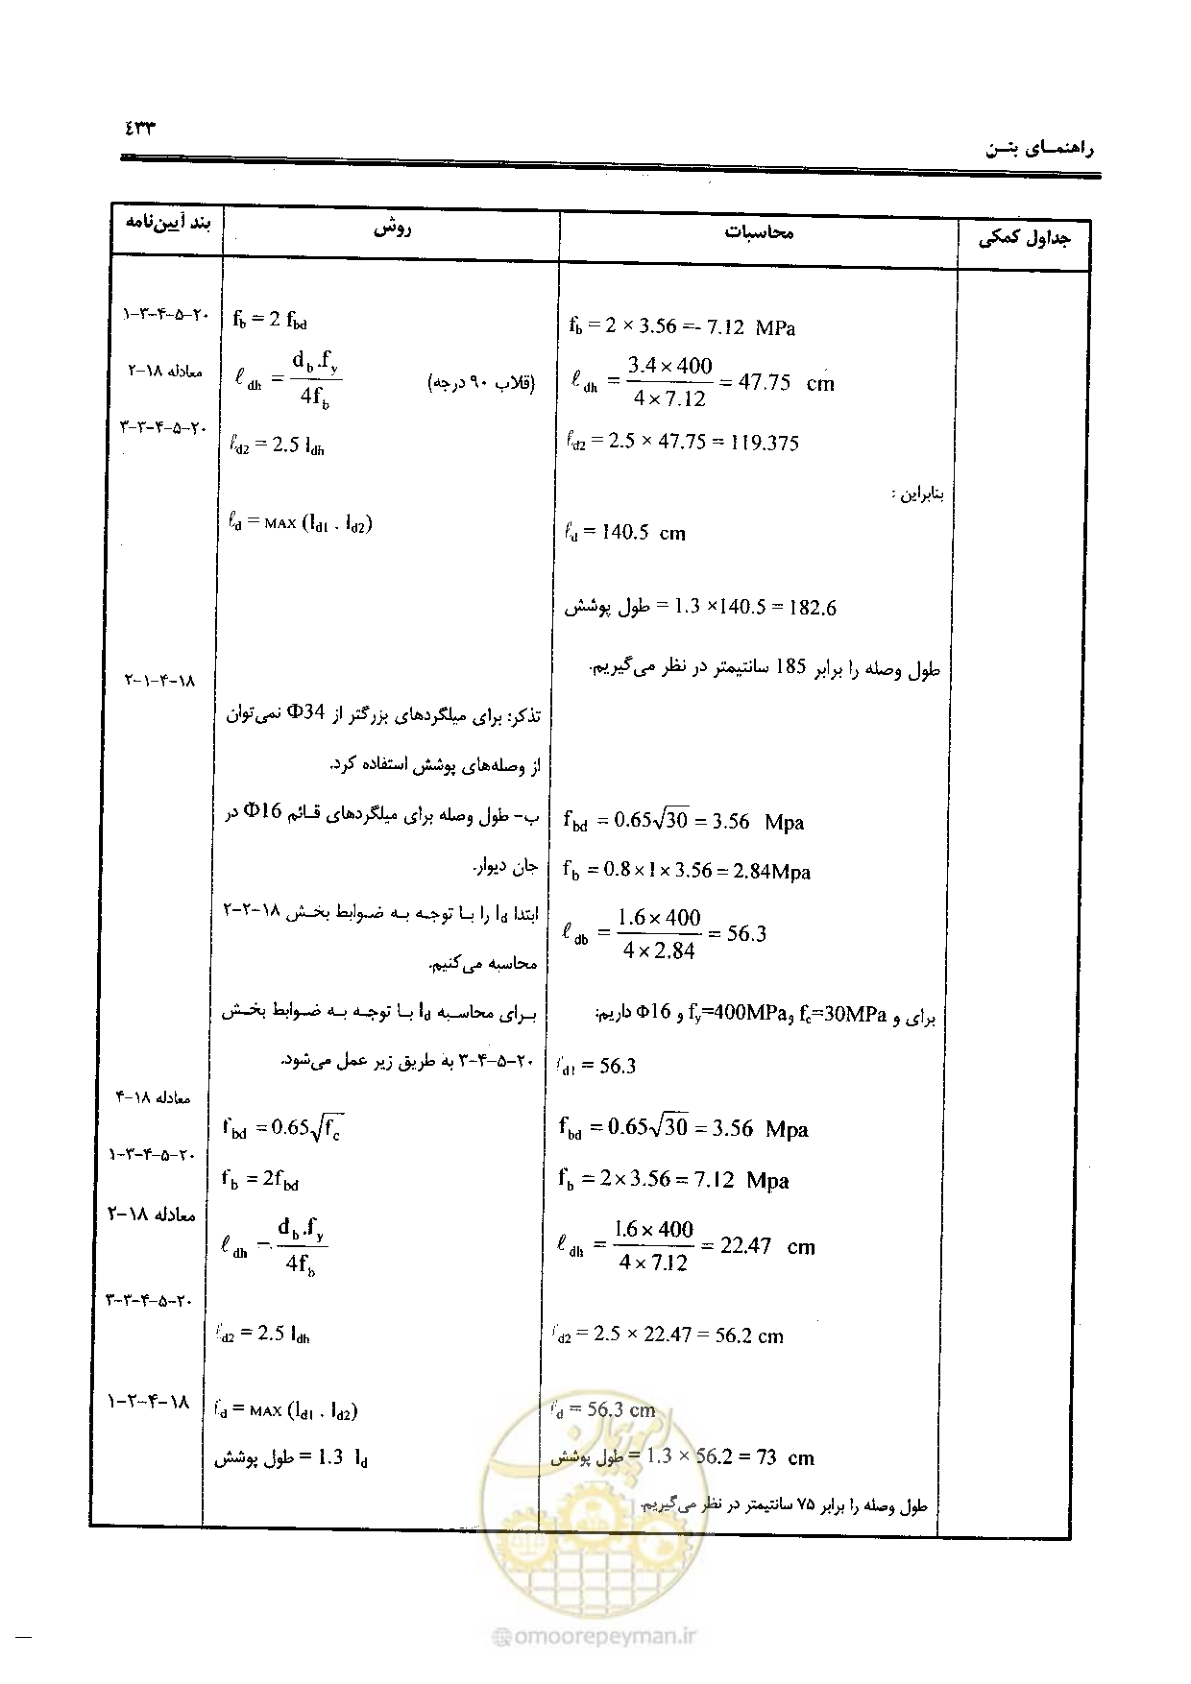 ٤٣٣
راهنمـای بتـن
بند آیین‌نامه | روش | محاسبات | جداول کمکی
۲۰-۵-۴-۳-۱ | f_b = 2 f_bd | f_b = 2 × 3.56 =- 7.12 MPa
معادله ۱۸-۲ | ℓ_dh = d_b.f_y / 4f_b (قلاب ۹۰ درجه) | ℓ_dh = 3.4 × 400 / 4 × 7.12 = 47.75 cm
۲۰-۵-۴-۳-۳ | ℓ_d2 = 2.5 l_dh | ℓ_d2 = 2.5 × 47.75 = 119.375
بنابراین :
ℓ_d = MAX (l_d1 . l_d2) | ℓ_d = 140.5 cm
طول پوشش = 1.3 ×140.5 = 182.6
طول وصله را برابر 185 سانتیمتر در نظر می‌گیریم.
۱۸-۴-۱-۲
تذکر: برای میلگردهای بزرگتر از Φ34 نمی‌توان
از وصله‌های پوشش استفاده کرد.
ب- طول وصله برای میلگردهای قـائم Φ16 در | f_bd = 0.65√30 = 3.56 Mpa
جان دیوار. | f_b = 0.8 × 1 × 3.56 = 2.84Mpa
ابتدا l_d را بـا توجـه بـه ضـوابط بخـش ۱۸-۲-۲ | ℓ_db = 1.6 × 400 / 4 × 2.84 = 56.3
محاسبه می‌کنیم.
بـرای محاسـبه l_d بـا توجـه بـه ضـوابط بخـش | برای و f_c=30MPa و f_y=400MPa و Φ16 داریم:
۲۰-۵-۴-۳ به طریق زیر عمل می‌شود. | ℓ_d1 = 56.3
معادله ۱۸-۴ | f_bd = 0.65√f_c | f_bd = 0.65√30 = 3.56 Mpa
۲۰-۵-۴-۳-۱ | f_b = 2f_bd | f_b = 2 × 3.56 = 7.12 Mpa
معادله ۱۸-۲ | ℓ_dh = d_b.f_y / 4f_b | ℓ_dh = 1.6 × 400 / 4 × 7.12 = 22.47 cm
۲۰-۵-۴-۳-۳ | ℓ_d2 = 2.5 l_dh | ℓ_d2 = 2.5 × 22.47 = 56.2 cm
۱۸-۴-۲-۱ | ℓ_d = MAX (l_d1 . l_d2) | ℓ_d = 56.3 cm
طول پوشش = 1.3 l_d | طول پوشش = 1.3 × 56.2 = 73 cm
طول وصله را برابر ۷۵ سانتیمتر در نظر می‌گیریم.
امور پیمان
@omoorepeyman.ir